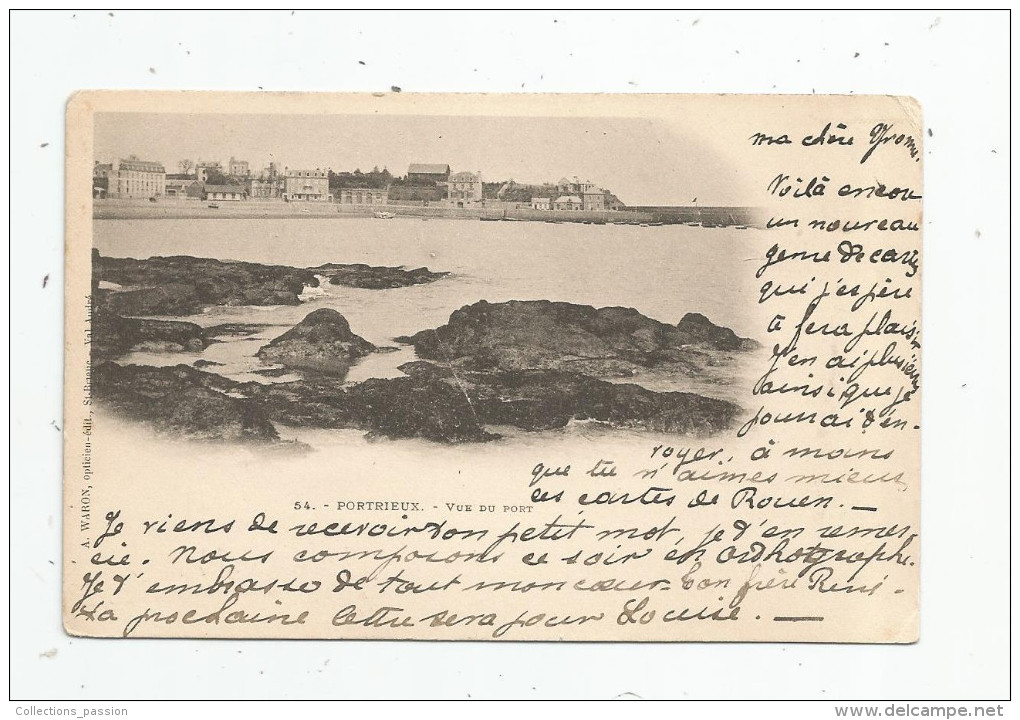 ma chère Yvonne.
Voilà encou
un nouveau
genre de cartes
qui j'espère
à fera plaisir
J'en ai plusieurs
ainsi que je
pourrai t'en-
voyer, à moins
que tu n'aimes mieux
des cartes de Rouen. —
54. - PORTRIEUX. - VUE DU PORT
A. WARON, opticien-édit., St-Brieuc - Val-André
Je viens de recevoir ton petit mot, je t'en remer
cie. Nous composons ce soir en orthographe.
Je t'embrasse de tout mon cœur. ton frère René -
La prochaine lettre sera pour Louise. —
Collections_passion
www.delcampe.net